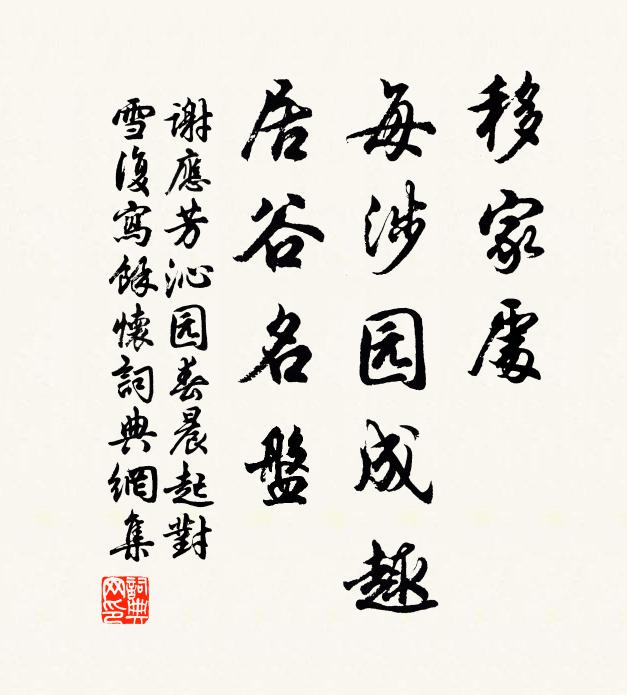 移家處
每涉园成趣
居谷名盤
谢應芳沁园春晨起對
雪復寫餘懷詞典網集
詞典网印